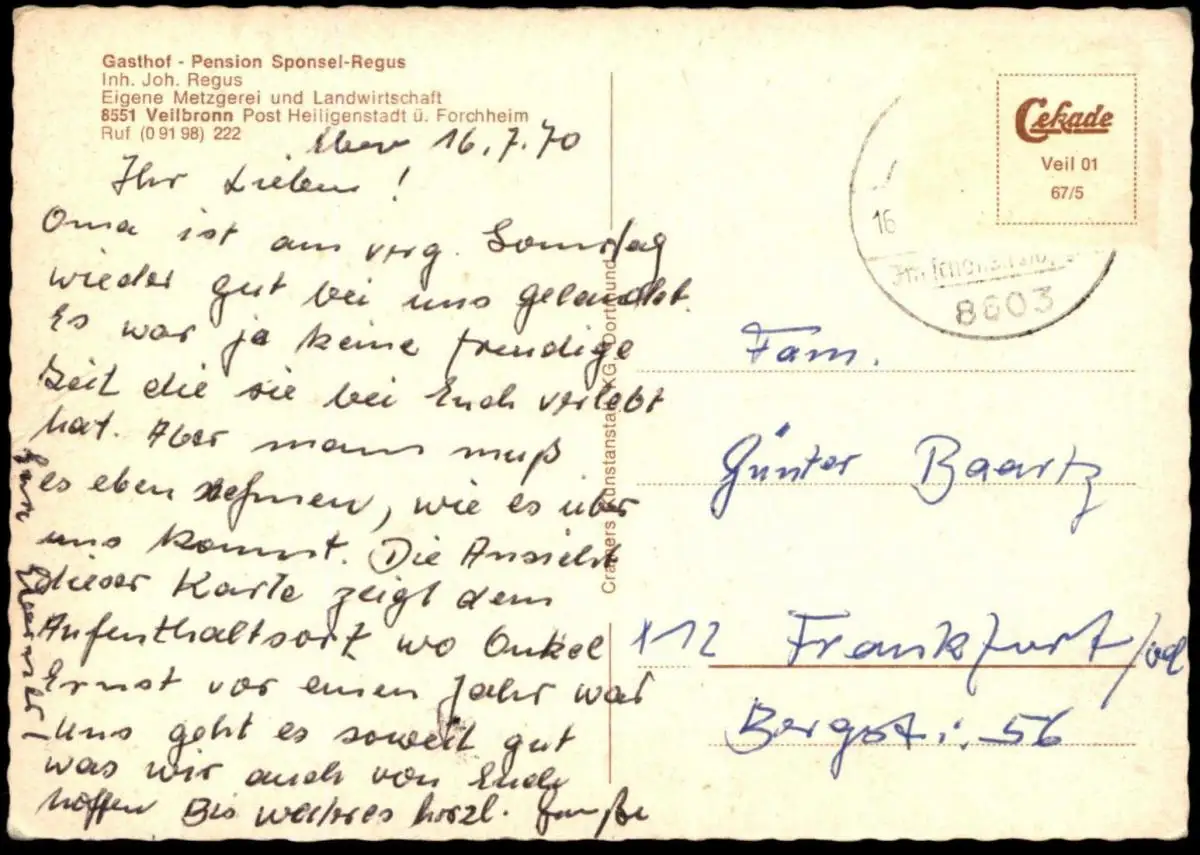 Gasthof - Pension Sponsel-Regus
Inh. Joh. Regus
Eigene Metzgerei und Landwirtschaft
8551 Veilbronn Post Heiligenstadt ü. Forchheim
Ruf (0 91 98) 222
16.7.70
Ihr Lieben!
Oma ist am verg. Sonnstag
wieder gut bei uns gelandet.
Es war ja keine freudige
Zeit die sie bei Euch verlebt
hat. Aber mann muß
es eben nehmen, wie es über
uns kommt. Die Ansicht
dieser Karte zeigt dem
Aufenthaltsort wo Onkel
Ernst vor einem Jahr war
Uns geht es soweit gut
was wir auch von Euch
hoffen Bis weiteres herzl. Grüße
Cramers Kunstanstalt KG, Dortmund
Cekade
Veil 01
67/5
16
8603
Fam.
Günter Baartz
X12 Frankfurt/od
Bergstr. 56